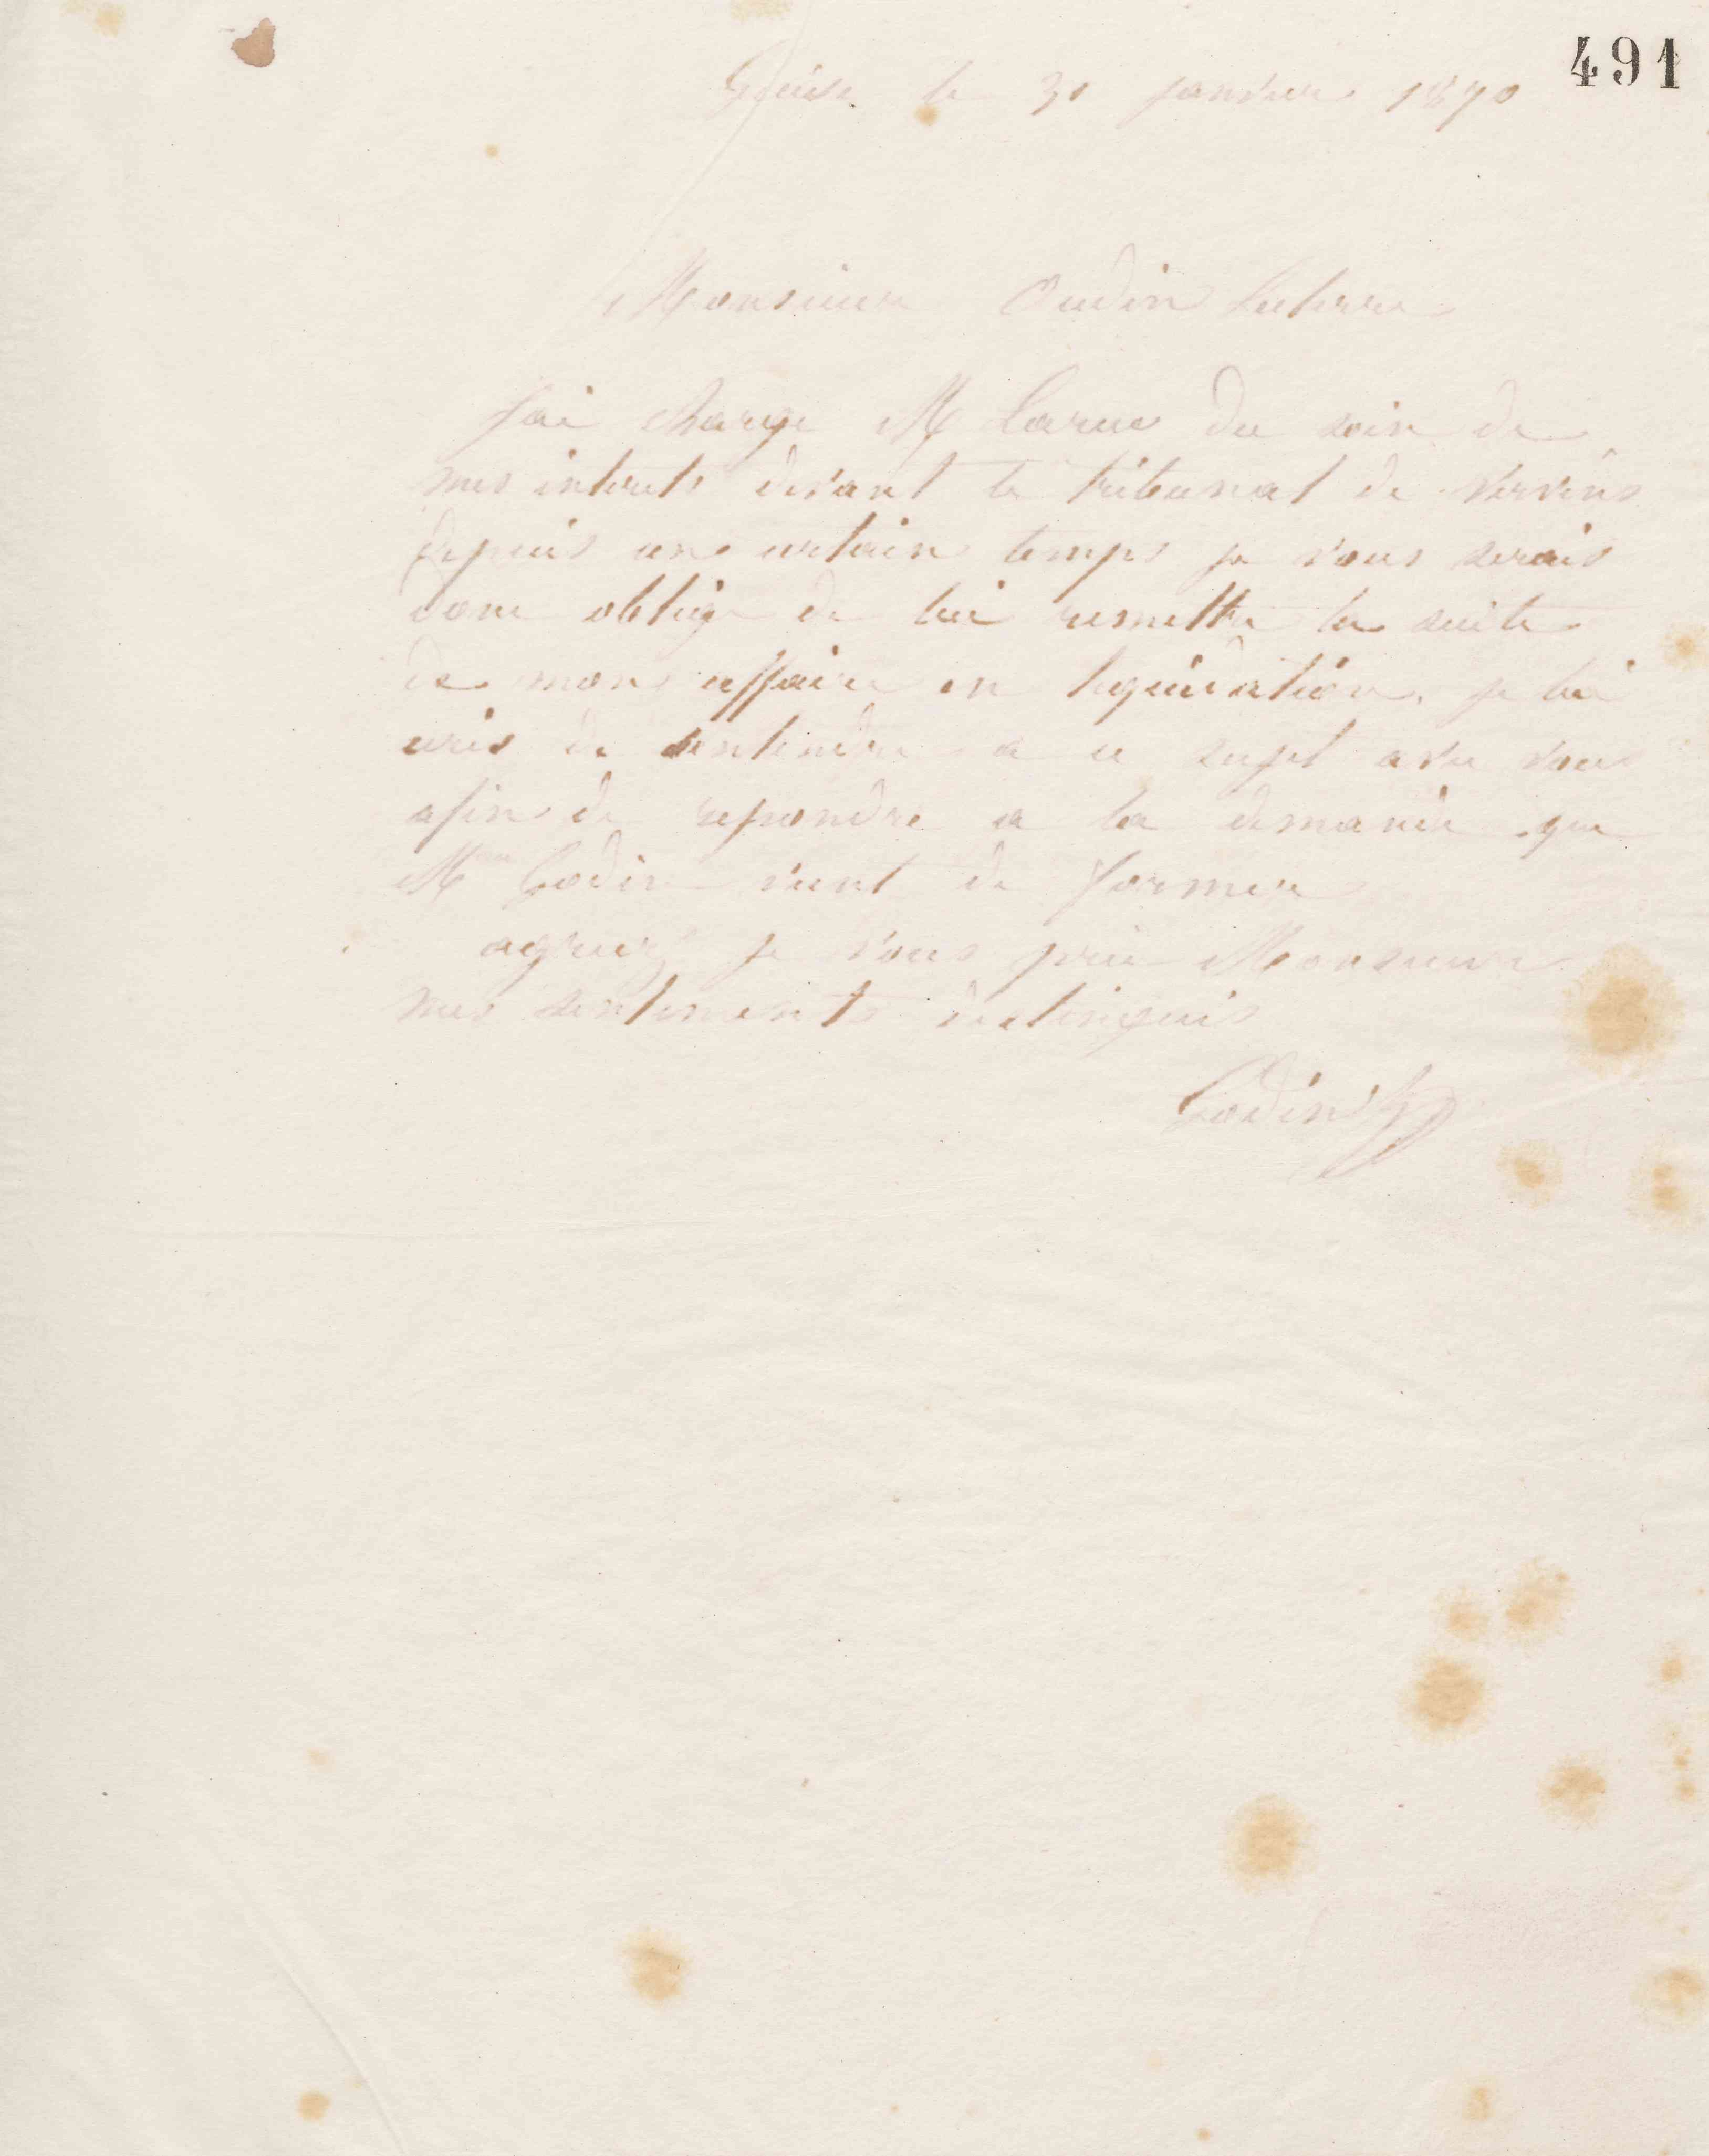 491
Guise le 30 janvier 1870
Monsieur Oudin
J'ai chargé M Larue du soin de
mes interets devant le tribunal de Vervins
depuis un certain temps je vous serais
donc obligé de lui remettre la suite
de mon affaire en liquidation. je lui
ecris de sentendre a ce sujet avec vous
afin de repondre a la demande que
Mme Godin vient de former
agreez je vous prie Monsieur
mes sentiments distingués
Godin